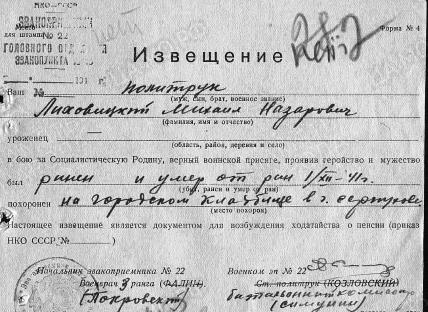 НКО—СССР
Место
для штампа
ЭВАКОПРИЕМНИК
№ 22
ГОЛОВНОГО ОТДЕЛ
ЭВАКОПУНКТА
194 г.
Форма № 4
Извещение
Ваш политрук
(муж, сын, брат, военное звание)
Лиховицкий Михаил Назарович
(фамилия, имя и отчество)
уроженец
(область, район, деревня и село)
в бою за Социалистическую Родину, верный воинской присяге, проявив геройство и мужество
был ранен и умер от ран 1/XII-41г.
(убит, ранен и умер от ран)
похоронен на городском кладбище в г. Серпухове
(место похорон)
Настоящее извещение является документом для возбуждения ходатайства о пенсии (приказ
НКО СССР № )
Начальник эвакоприемника № 22
Военврач 3 ранга (ФАЛИН)
(Покровский)
Военком эп № 22
Ст. политрук (КОЗЛОВСКИЙ)
батальонный комиссар